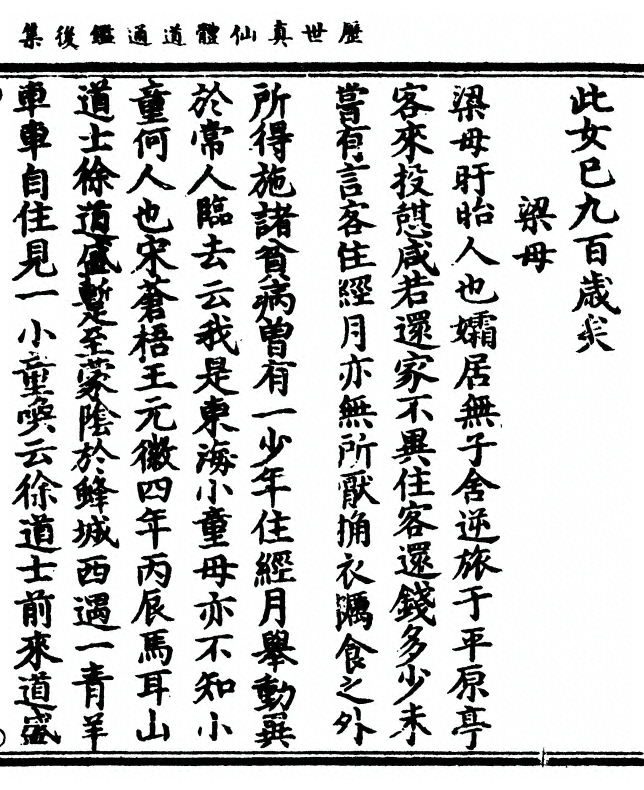 歷世真仙體道通鑑後集
此女已九百歲矣
梁母
梁母盱眙人也孀居無子舍逆旅于平原亭
客來投憩咸若還家不異住客還錢多少未
嘗有言客住經月亦無所厭捔衣糲食之外
所得施諸貧病曾有一少年住經月舉動異
於常人臨去云我是東海小童母亦不知小
童何人也宋蒼梧王元徽四年丙辰馬耳山
道士徐道盛蹔至蒙陰於蜂城西遇一青羊
車車自住見一小童喚云徐道士前來道盛